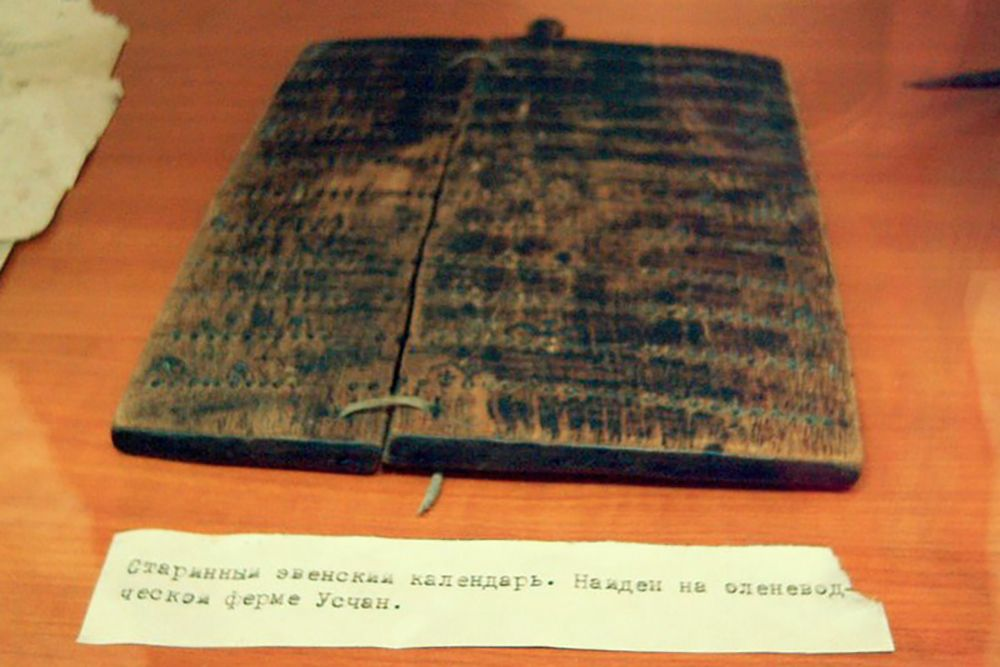 Старинный эвенский календарь. Найден на оленевод-
ческой ферме Усчан.